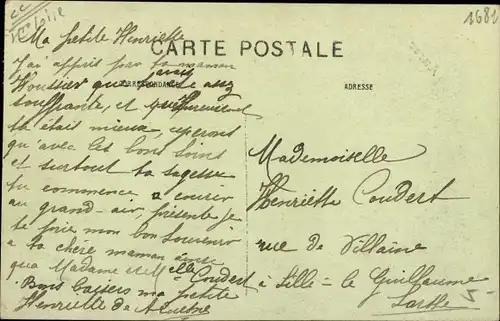 1681
Loire
CARTE POSTALE
CORRESPONDANCE
ADRESSE
Ma petite Henriette
J'ai appris par ta maman
que tu assez
souffrante, et
ta était mieux, esperons
qu'avec les bons soins
et surtout ta sagesse
tu commence a courir
au grand-air, présente je
te prie mon bon Souvenir
a ta chère maman ainsi
que Madame et Melle Coudert
Bons baisers ma petite
Henriette de
Mademoiselle
Henriette Coudert
rue de Villaine
à Sillé-le Guillaume
Sarthe